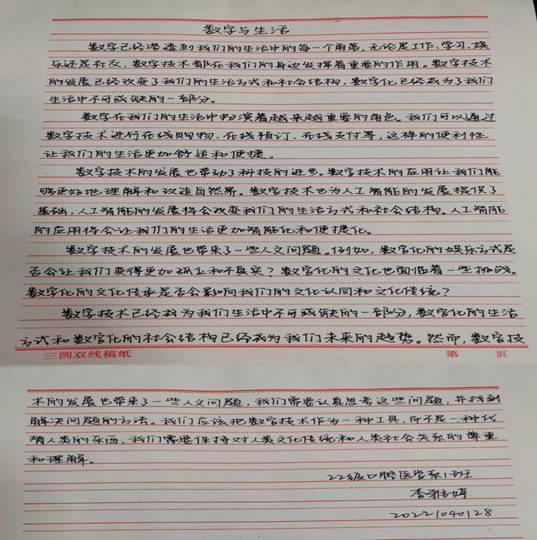 数字与生活
数字已经渗透到我们的生活中的每一个角落,无论是工作、学习、娱
乐还是社交,数字技术都在我们的身边发挥着重要的作用。数字技术
的发展已经改变了我们的生活方式和社会结构,数字化已经成为了我们
生活中不可或缺的一部分。
数字在我们的生活中扮演着越来越重要的角色。我们可以通过
数字技术进行在线购物、在线预订、在线支付等,这样的便利性
让我们的生活更加舒适和便捷。
数字技术的发展也带动了科技的进步。数字技术的应用让我们能
够更好地理解和改造自然界。数字技术也为人工智能的发展提供了
基础,人工智能的发展将会改变我们的生活方式和社会结构。人工智能
的应用将会让我们的生活更加智能化和便捷化。
数字技术的发展也带来了一些人文问题。例如,数字化的娱乐方式是
否会让我们变得更加孤立和不真实?数字化的文化也面临着一些挑战。
数字化的文化传承是否会影响我们的文化认同和文化传统?
数字技术已经成为我们生活中不可或缺的一部分,数字化的生活
方式和数字化的社会结构已经成为我们未来的趋势。然而,数字技
三圆双线稿纸 第 页
术的发展也带来了一些人文问题,我们需要认真思考这些问题,并找到
解决问题的方法。我们应该把数字技术作为一种工具,而不是一种代
替人类的东西,我们需要保持对人类文化传统和人类社会关系的尊重
和理解。
22级口腔医学系1班
李雅婷
2022104028